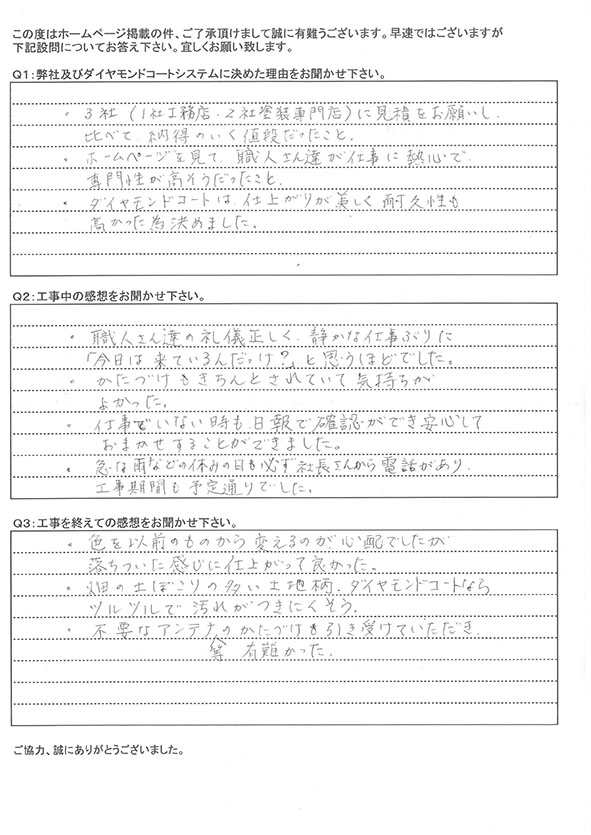 この度はホームページ掲載の件、ご了承頂けまして誠に有難うございます。早速ではございますが
下記設問についてお答え下さい。宜しくお願い致します。
Q1:弊社及びダイヤモンドコートシステムに決めた理由をお聞かせ下さい。
・3社(1社工務店・2社塗装専門店)に見積をお願いし、
比べて、納得のいく値段だったこと。
・ホームページを見て、職人さん達が仕事に熱心で
専門性が高そうだったこと。
・ダイヤモンドコートは、仕上がりが美しく耐久性も
高かった為決めました。
Q2:工事中の感想をお聞かせ下さい。
・職人さん達の礼儀正しく、静かな仕事ぶりに
「今日は来ているんだっけ?」と思うほどでした。
・かたづけもきちんとされていて気持ちが
よかった。
・仕事でいない時も日報で確認ができ安心して
おまかせすることができました。
・急な雨などの休みの日も必ず社長さんから電話があり、
工事期間も予定通りでした。
Q3:工事を終えての感想をお聞かせ下さい。
・色を以前のものから変えるのが心配でしたが
落ちついた感じに仕上がって良かった。
・畑の土ぼこりの多い土地柄、ダイヤモンドコートなら
ツルツルで汚れがつきにくそう。
・不要なアンテナのかたづけも引き受けていただき、
等 有難かった。
ご協力、誠にありがとうございました。